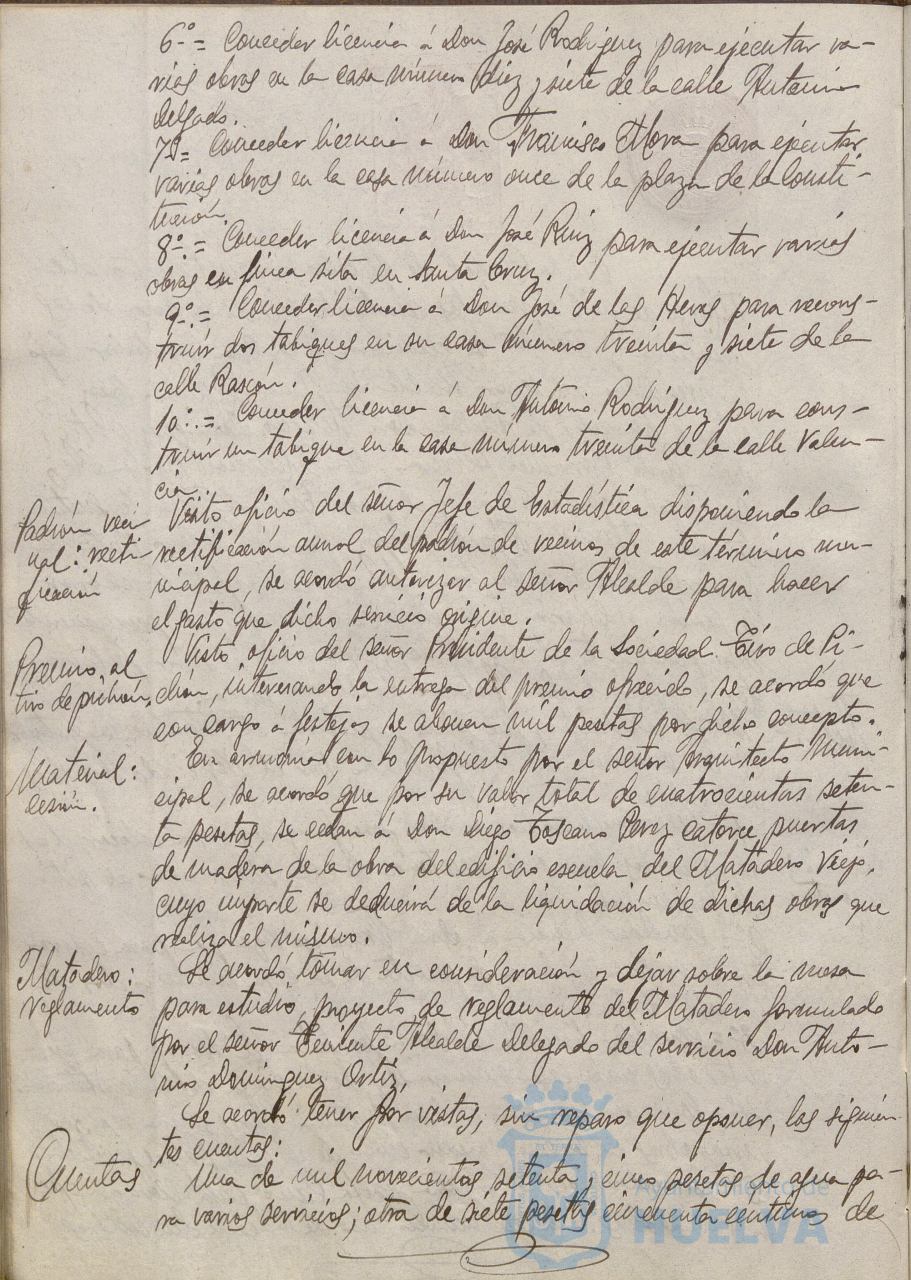 6º = Conceder licencia á Don José Rodríguez para ejecutar va-
rias obras en la casa número diez y siete de la calle Antonio
Delgado.
7º = Conceder licencia á Don Francisco Mora para ejecutar
varias obras en la casa número once de la plaza de la Consti-
tución.
8º = Conceder licencia á Don José Ruiz para ejecutar varias
obras en finca sita en Santa Cruz.
9º = Conceder licencia á Don José de las Heras para recons-
truir dos tabiques en su casa número treinta y siete de la
calle Rascón.
10º = Conceder licencia á Don Antonio Rodríguez para cons-
truir un tabique en la casa número treinta de la calle Valen-
cia.
Padrón veci
nal: recti-
ficación
Visto oficio del señor Jefe de Estadística disponiendo la
rectificación anual del padrón de vecinos de este término mu-
nicipal, se acordó autorizar al señor Alcalde para hacer
el gasto que dicho servicio origine.
Premio al
tiro de pichón.
Visto oficio del señor Presidente de la Sociedad Tiro de Pi-
chón, interesando la entrega del premio ofrecido, se acordó que
con cargo á festejos se abonen mil pesetas por dicho concepto.
Material:
cesión.
En armonía con lo propuesto por el señor Arquitecto Muni-
cipal, se acordó que por su valor total de cuatrocientas seten-
ta pesetas, se cedan á Don Diego Toscano Perez catorce puertas
de madera de la obra del edificio escuela del Matadero Viejo,
cuyo importe se deducirá de la liquidación de dichas obras que
realiza el mismo.
Matadero:
reglamento
Se acordó tomar en consideración y dejar sobre la mesa
para estudio, proyecto de reglamento del Matadero formulado
por el señor Teniente Alcalde Delegado del servicio Don Anto-
nio Dominguez Ortiz.
Se acordó tener por vistas, sin reparo que oponer, las siguien-
tes cuentas:
Cuentas
Una de mil novecientas setenta y cinco pesetas de agua pa-
ra varios servicios; otra de siete pesetas cincuenta centimos de
Ayuntamiento de
HUELVA